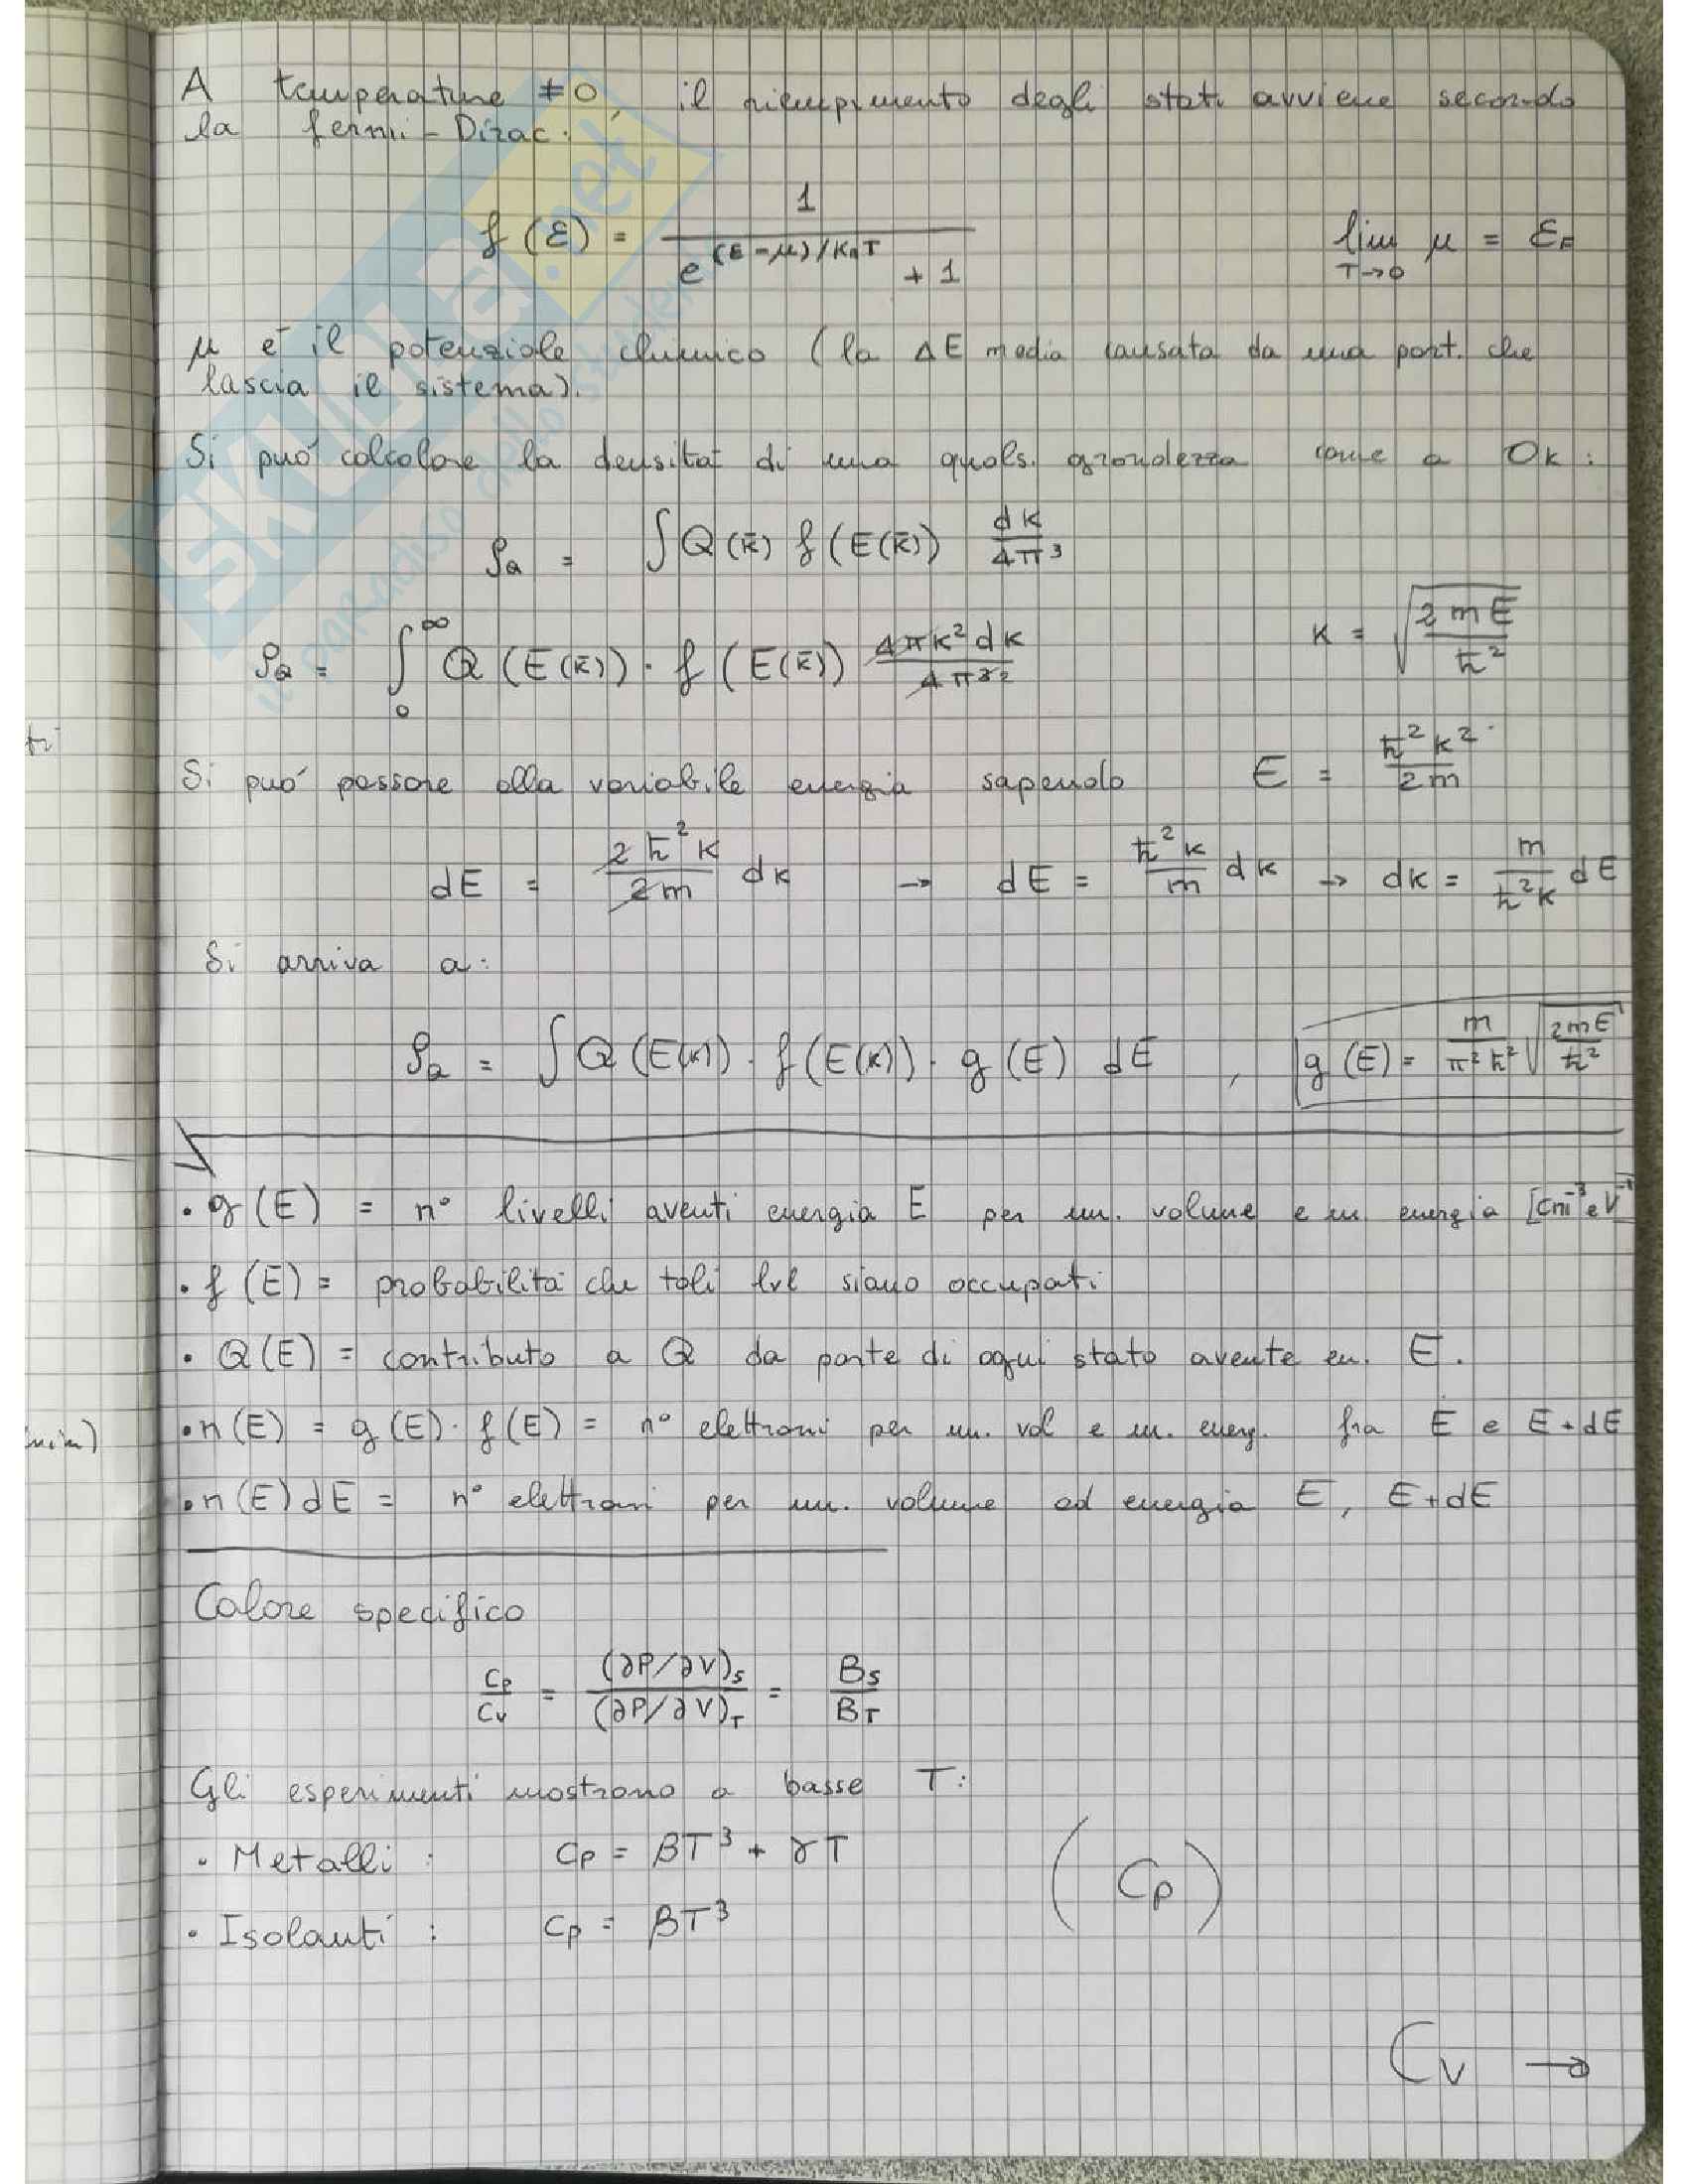 A temperature ≠0, il riempimento degli stati avviene secondo
la fermi-Dirac:
f(ε) = 1 / (e^((E-μ)/K_BT) + 1)    lim_{T→0} μ = ε_F
μ é il potenziale chimico (la ΔE media causata da una part. che
lascia il sistema).
Si puó calcolare la densitá di una quals. grandezza come a 0k:
ρ_Q = ∫ Q(k̄) f(E(k̄)) dk/4π³
ρ_Q = ∫_0^∞ Q(E(k̄)) · f(E(k̄)) 4πk²dk/4π³²    K = √(2mE/ħ²)
Si puó passare alla variabile energia sapendo E = ħ²k²/2m
dE = 2ħ²k/2m dk → dE = ħ²k/m dk → dk = m/ħ²k dE
Si arriva a:
ρ_Q = ∫ Q(E(k)) · f(E(k)) · g(E) dE , g(E) = m/π²ħ² √(2mE/ħ²)
• g(E) = n° livelli aventi energia E per un. volume e un. energia [cm⁻³eV⁻¹]
• f(E) = probabilitá che tali lvl siano occupati
• Q(E) = contributo a Q da parte di ogni stato avente en. E.
• n(E) = g(E)·f(E) = n° elettroni per un. vol e un. energ. fra E e E+dE
• n(E)dE = n° elettroni per un. volume ad energia E, E+dE
Calore specifico
Cp/Cv = (∂P/∂V)_S / (∂P/∂V)_T = B_S/B_T
Gli esperimenti mostrano a basse T:
• Metalli: Cp = βT³ + γT
(Cp)
• Isolanti: Cp = βT³
Cv →
SKUOLA.net
il paradiso dello studente